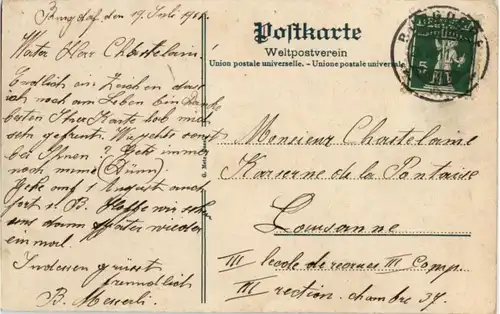 Burgdorf, den 19. Juli 1911.
Werter Herr Chastelain!
Endlich ein Zeichen dass
ich noch am Leben bin. Danke
Ihre Karte hab mich
sehr gefreut. Wie geht's sonst
bei Ihnen? Gets immer
noch mimi (Dünn).
Gehe auf 1 August auch
fort v. B. Hoffe wir sehn
uns dann später wieder
ein mal.
Indessen grüsst
freundlich
B. Messerli.
Postkarte
Weltpostverein
Union postale universelle. - Unione postale universale
HELVETIA
5
Monsieur Chastelain
Kaserne de la Pontaise
Lousanne
III école de recrues III Comp.
III section. chambre 37.